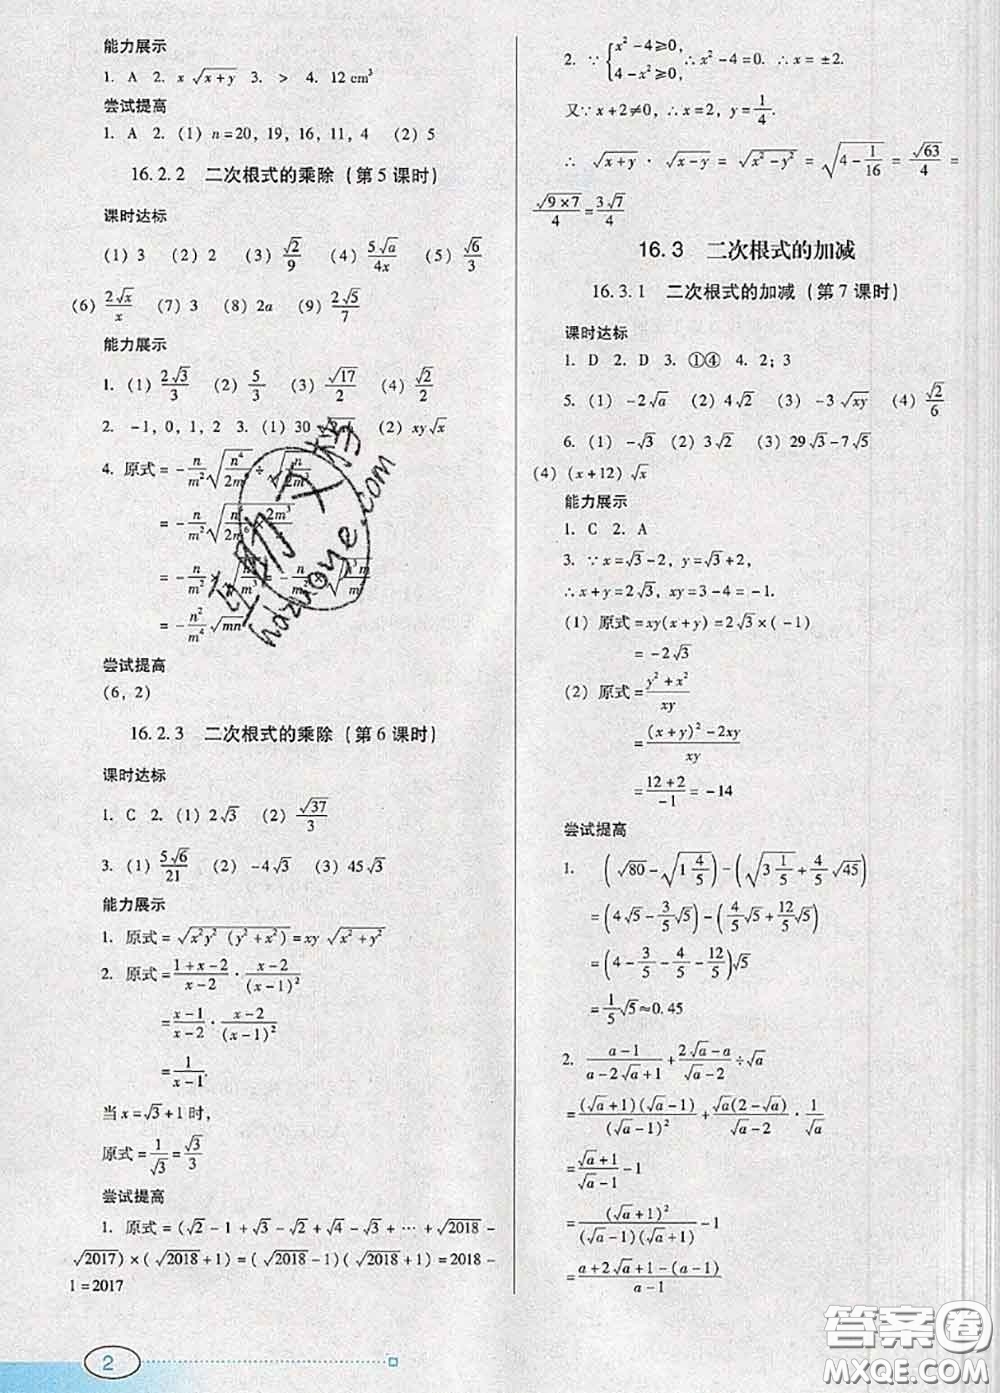 能力展示
1. A 2. x√(x+y) 3. > 4. 12 cm³
尝试提高
1. A 2. (1) n=20, 19, 16, 11, 4 (2) 5
16.2.2 二次根式的乘除(第5课时)
课时达标
(1) 3 (2) 2 (3) √2/9 (4) 5√a/4x (5) √6/3
(6) 2√x/x (7) 3 (8) 2a (9) 2√5/7
能力展示
1. (1) 2√3/3 (2) 5/3 (3) √17/2 (4) √2/2
2. -1, 0, 1, 2 3. (1) 30 (2) xy√x
4. 原式=-n/m²
=-n/m²
=-n/m²
=-n²/m⁴
尝试提高
(6, 2)
16.2.3 二次根式的乘除(第6课时)
课时达标
1. C 2. (1) 2√3 (2) √37/3
3. (1) 5√6/21 (2) -4√3 (3) 45√3
能力展示
1. 原式=√(x²y²(y²+x²))=xy√(x²+y²)
2. 原式=(1+x-2)/(x-2)·(x-2)/(x-1)²
=(x-1)/(x-2)·(x-2)/(x-1)²
=1/(x-1).
当x=√3+1时,
原式=1/√3=√3/3
尝试提高
1. 原式=(√2-1+√3-√2+√4-√3+…+√2018-
√2017)×(√2018+1)=(√2018-1)(√2018+1)=2018-
1=2017
2
2. ∵{x²-4≥0, 4-x²≥0, ∴x²-4=0. ∴x=±2.
又∵x+2≠0, ∴x=2, y=1/4.
∴ √(x+y)·√(x-y)=√(x²-y²)=√(4-1/16)=√63/4=
√(9×7)/4=3√7/4
16.3 二次根式的加减
16.3.1 二次根式的加减(第7课时)
课时达标
1. D 2. D 3. ①④ 4. 2; 3
5. (1) -2√a (2) 4√2 (3) -3√xy (4) √2/6
6. (1) -√3 (2) 3√2 (3) 29√3-7√5
(4) (x+12)√x
能力展示
1. C 2. A
3. ∵x=√3-2, y=√3+2,
∴x+y=2√3, xy=3-4=-1.
(1) 原式=xy(x+y)=2√3×(-1)
=-2√3
(2) 原式=(y²+x²)/xy
=((x+y)²-2xy)/xy
=(12+2)/-1=-14
尝试提高
1. (√80-√(1 4/5))-(√(3 1/5)+4/5√45)
=(4√5-3/5√5)-(4/5√5+12/5√5)
=(4-3/5-4/5-12/5)√5
=1/5√5≈0.45
2. (a-1)/(a-2√a+1)+(2√a-a)/(√a-2)÷√a
=(√a+1)(√a-1)/(√a-1)²+√a(2-√a)/(√a-2)·1/√a
=(√a+1)/(√a-1)-1
=(√a+1)²/(√a-1)(√a+1)-1
=(a+2√a+1-(a-1))/(a-1)
答案圈
MXQE.COM